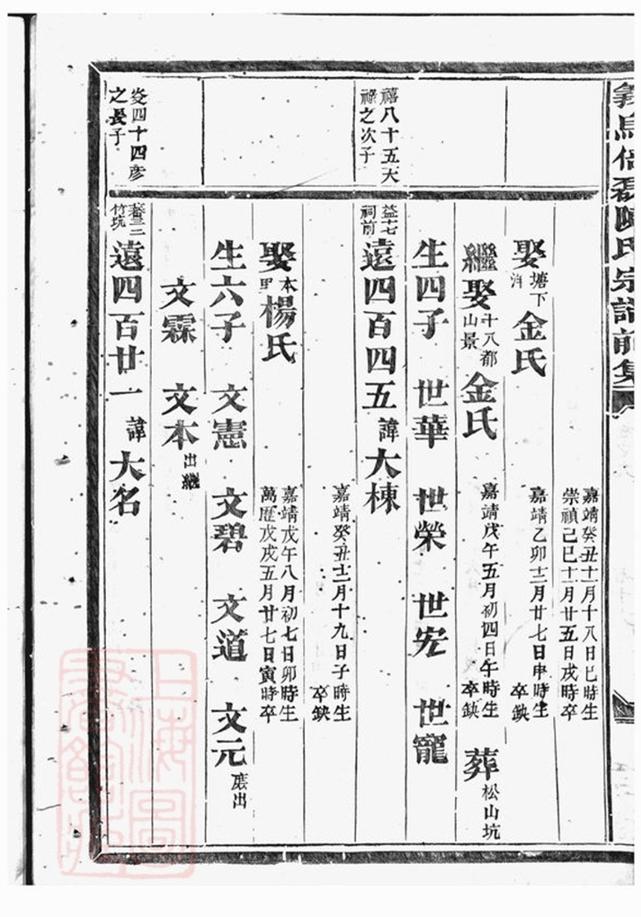 義烏倍磊陳氏宗譜前集
嘉靖癸丑十一月十八日巳時生
崇禎己巳十一月廿五日戌時卒
娶塘下金氏
嘉靖乙卯十二月廿七日申時生
卒缺
禧八十五大
祿之次子
繼娶十八都山景金氏
嘉靖戊午五月初四日午時生
卒缺
葬松山坑
生四子 世華 世榮 世宏 世寵
益十七
祠前
遠四百四五 諱大棟
嘉靖癸丑十二月十九日子時生
卒缺
娶本里楊氏
嘉靖戊午八月初七日卯時生
萬歷戊戌五月廿七日寅時卒
生六子 文憲 文碧 文道 文元庶出
文霖 文本出繼
炎四十四彥
之長子
竹坑
遠四百廿一 諱大名
上海圖書館藏